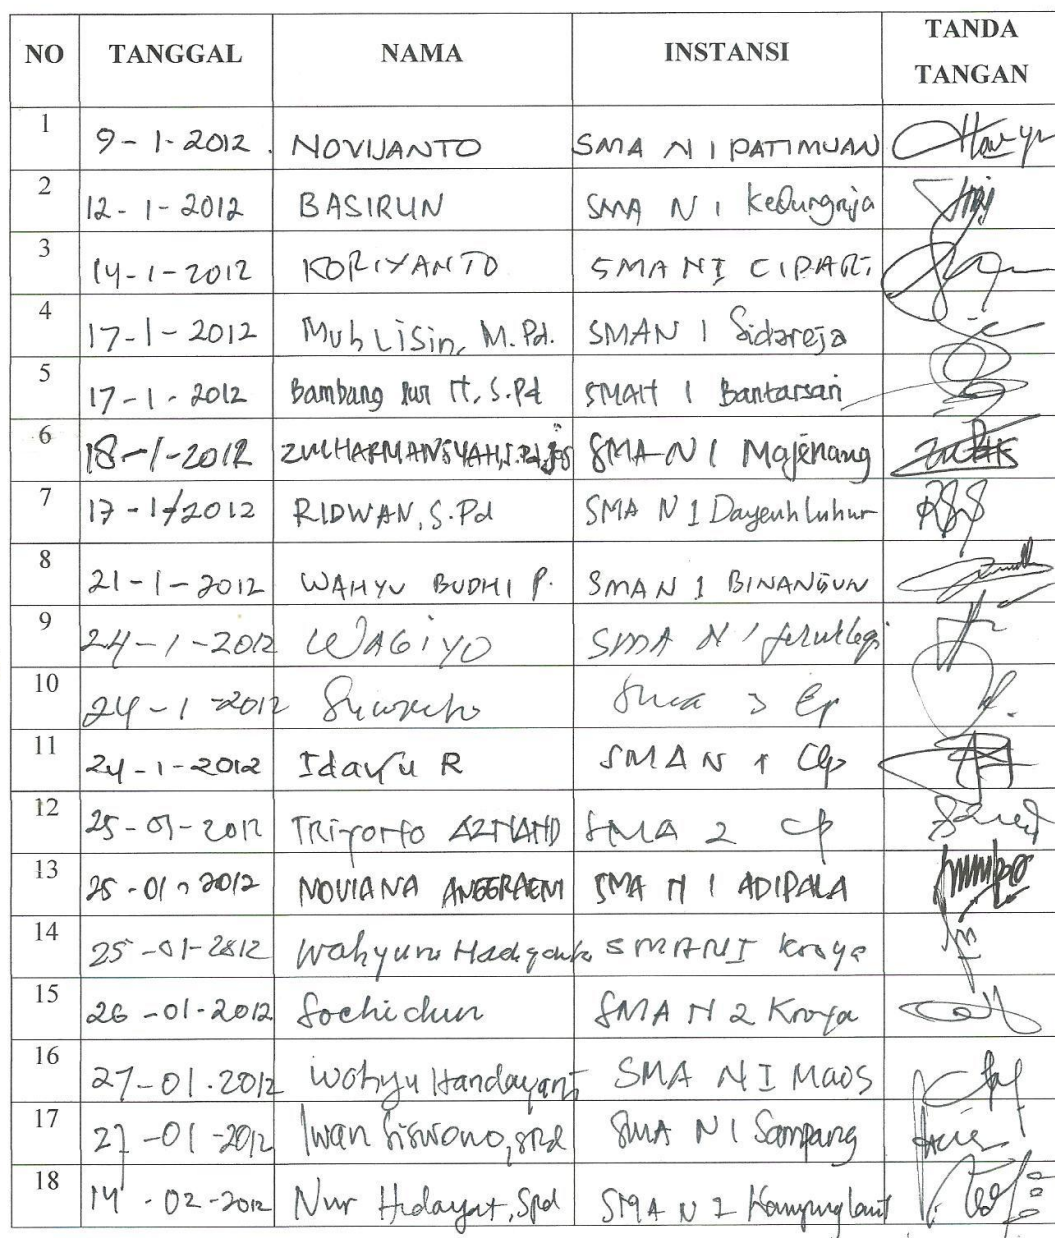 NO TANGGAL NAMA INSTANSI TANDA TANGAN
1 9-1-2012. NOVIJANTO SMA N 1 PATIMUAN
2 12-1-2012 BASIRUN SMA N 1 Kedungreja
3 14-1-2012 KORIYANTO SMA N I CIPARI
4 17-1-2012 Muhlisin, M.Pd. SMAN 1 Sidareja
5 17-1-2012 Bambang Nur H, S.Pd SMAN 1 Bantarsari
6 18-1-2012 ZULHARMANSYAH, S.Pd SMA N 1 Majenang
7 17-1-2012 RIDWAN, S.Pd SMA N 1 Dayeuhluhur
8 21-1-2012 WAHYU BUDHI P. SMA N 1 BINANGUN
9 24-1-2012 WAGIYO SMA N 1 Jeruklegi
10 24-1-2012 SMA 3 Clp
11 24-1-2012 Idayu R SMA N 1 Clp
12 25-01-2012 SMA 2 Cp
13 25-01-2012 NOVIANA ANGGRAENI SMA N 1 ADIPALA
14 25-01-2012 Wahyuni SMA N I Kroya
15 26-01-2012 Sochidun SMA N 2 Kroya
16 27-01.2012 Wahyu Handayani SMA N I Maos
17 27-01-2012 Iwan Siswono, SPd SMA N 1 Sampang
18 14-02-2012 Nur Hidayat, Spd SMA N 1 Kampunglaut